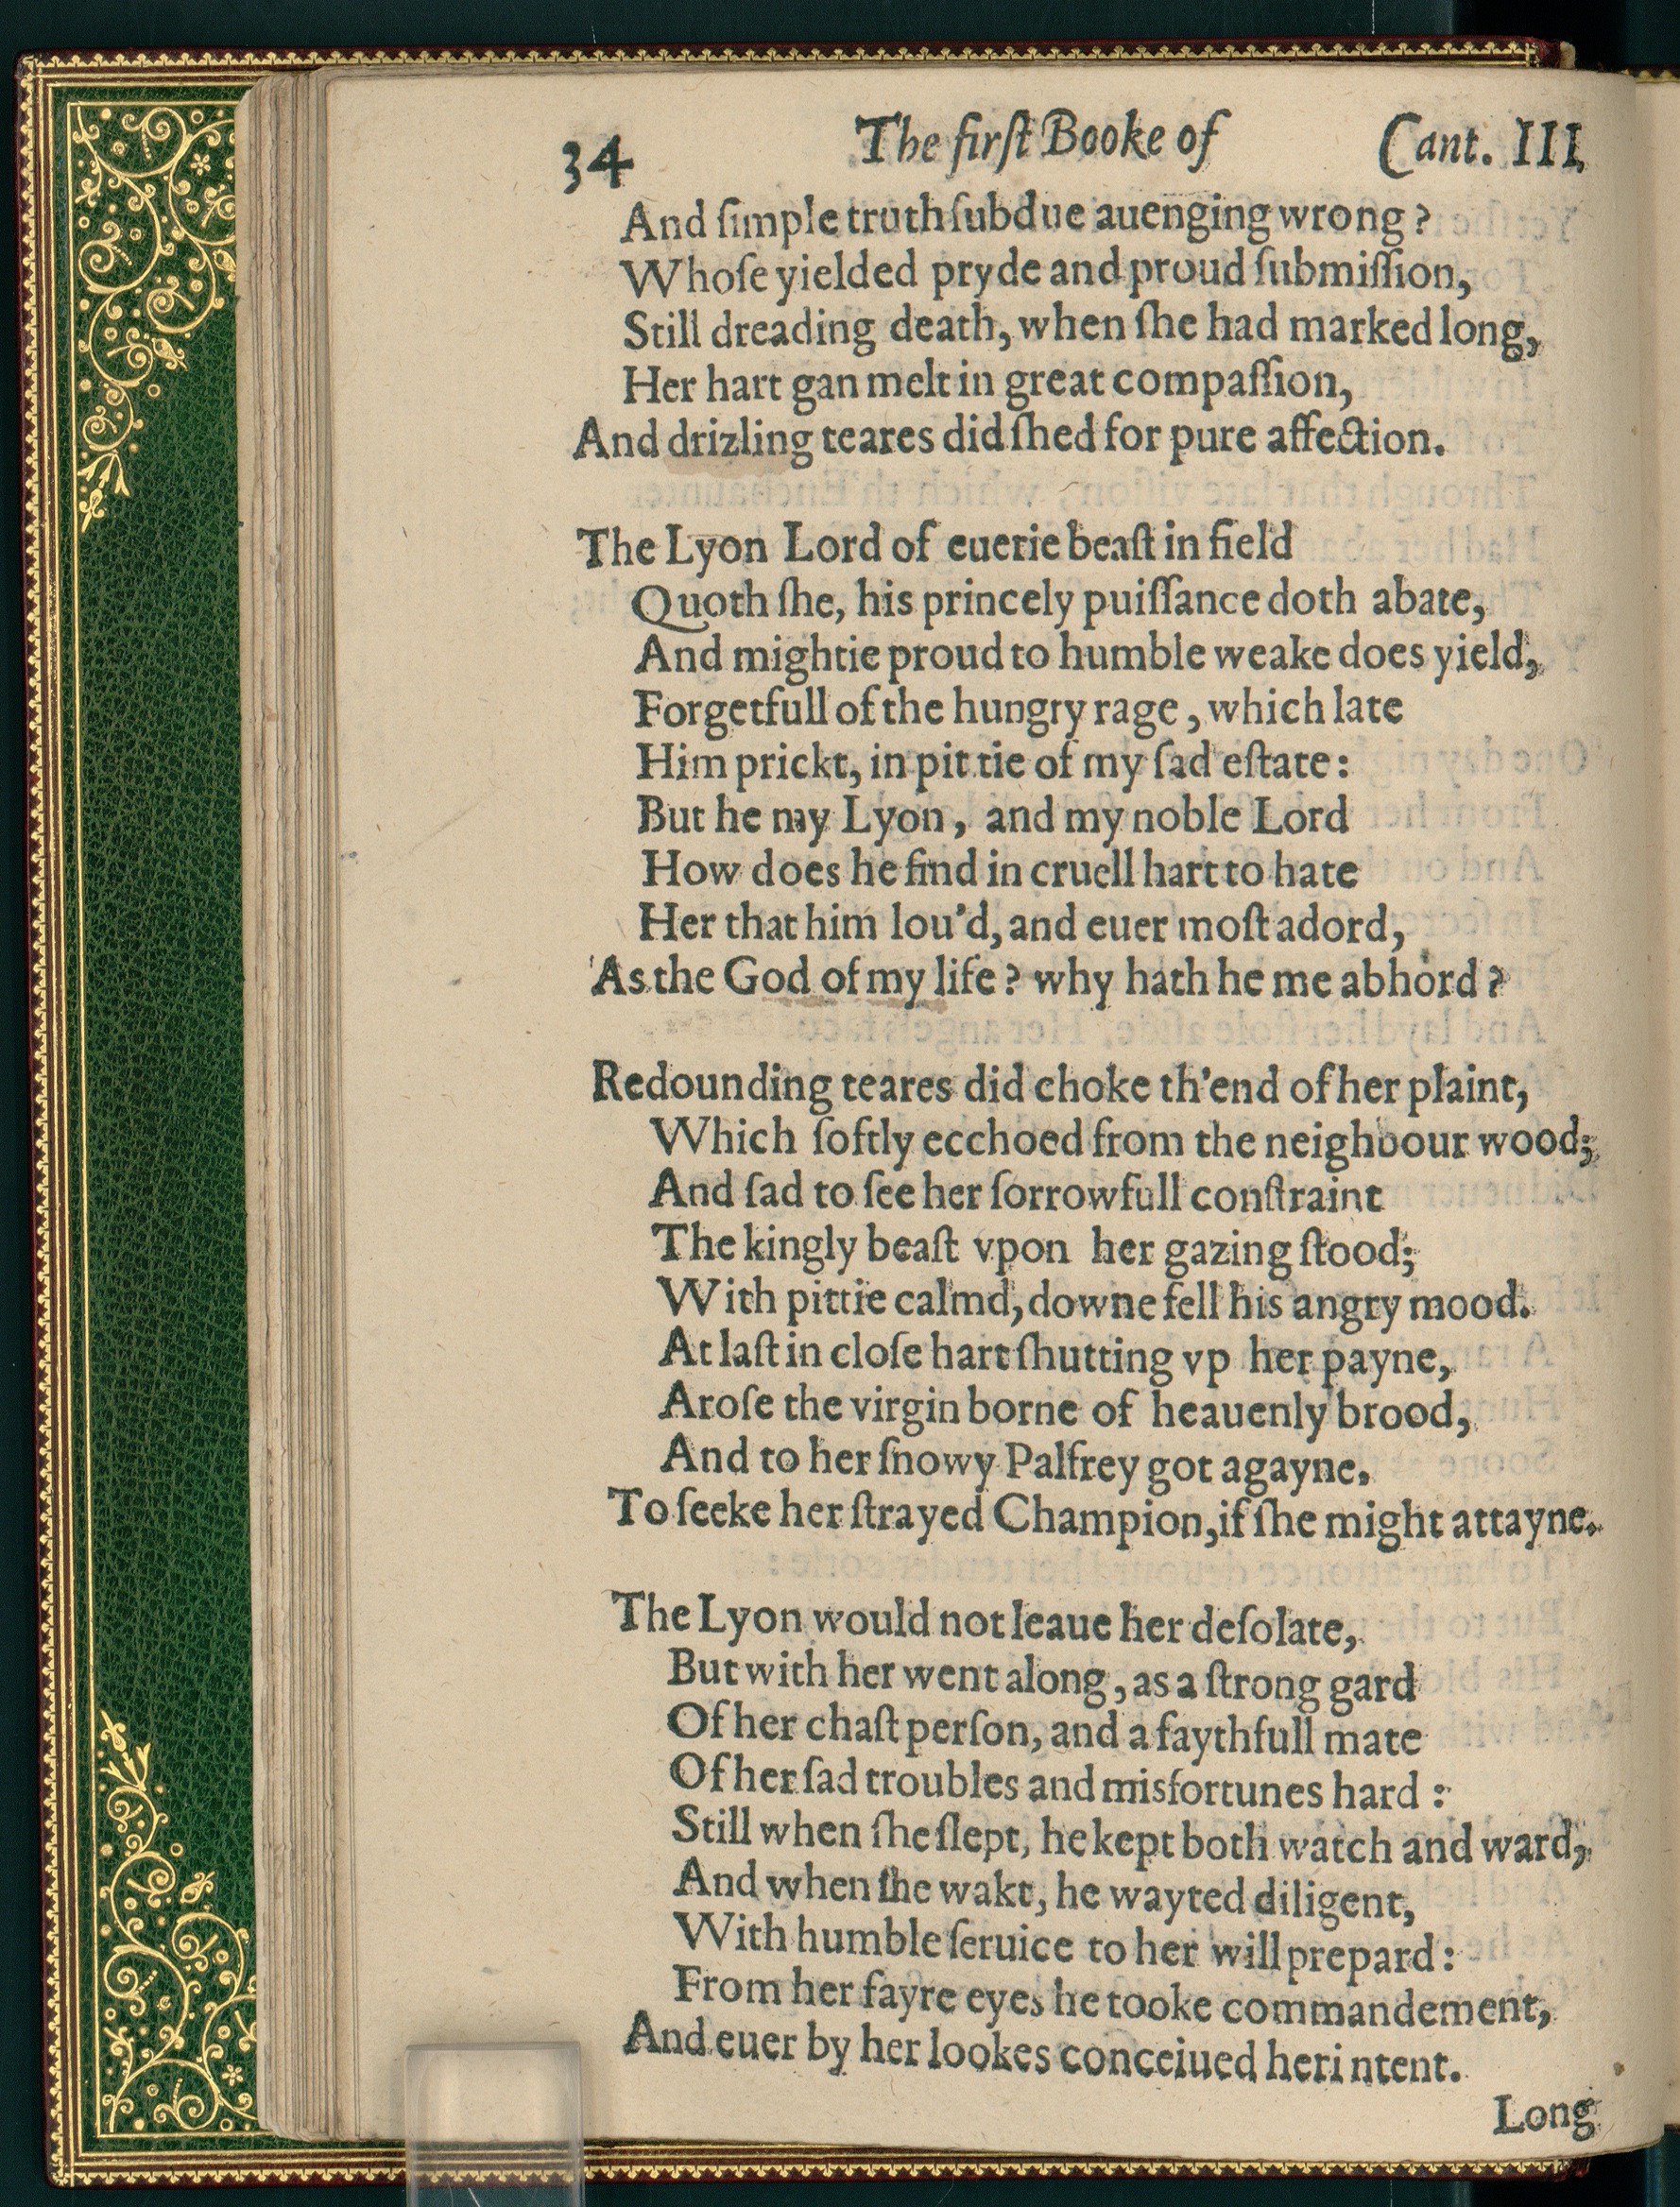 34 The firſt Booke of Cant. III.
And ſimple truth ſubdue auenging wrong?
Whoſe yielded pryde and proud ſubmiſſion,
Still dreading death, when ſhe had marked long,
Her hart gan melt in great compaſſion,
And drizling teares did ſhed for pure affection.
The Lyon Lord of euerie beaſt in field
Quoth ſhe, his princely puiſſance doth abate,
And mightie proud to humble weake does yield,
Forgetfull of the hungry rage, which late
Him prickt, in pittie of my ſad eſtate:
But he my Lyon, and my noble Lord
How does he find in cruell hart to hate
Her that him lou'd, and euer moſt adord,
As the God of my life? why hath he me abhord?
Redounding teares did choke th'end of her plaint,
Which ſoftly ecchoed from the neighbour wood;
And ſad to ſee her ſorrowfull conſtraint
The kingly beaſt vpon her gazing ſtood;
With pittie calmd, downe fell his angry mood.
At laſt in cloſe hart ſhutting vp her payne,
Aroſe the virgin borne of heauenly brood,
And to her ſnowy Palfrey got agayne,
To ſeeke her ſtrayed Champion, if ſhe might attayne.
The Lyon would not leaue her deſolate,
But with her went along, as a ſtrong gard
Of her chaſt perſon, and a faythfull mate
Of her ſad troubles and misfortunes hard:
Still when ſhe ſlept, he kept both watch and ward,
And when ſhe wakt, he wayted diligent,
With humble ſeruice to her will prepard:
From her fayre eyes he tooke commandement,
And euer by her lookes conceiued her intent.
Long